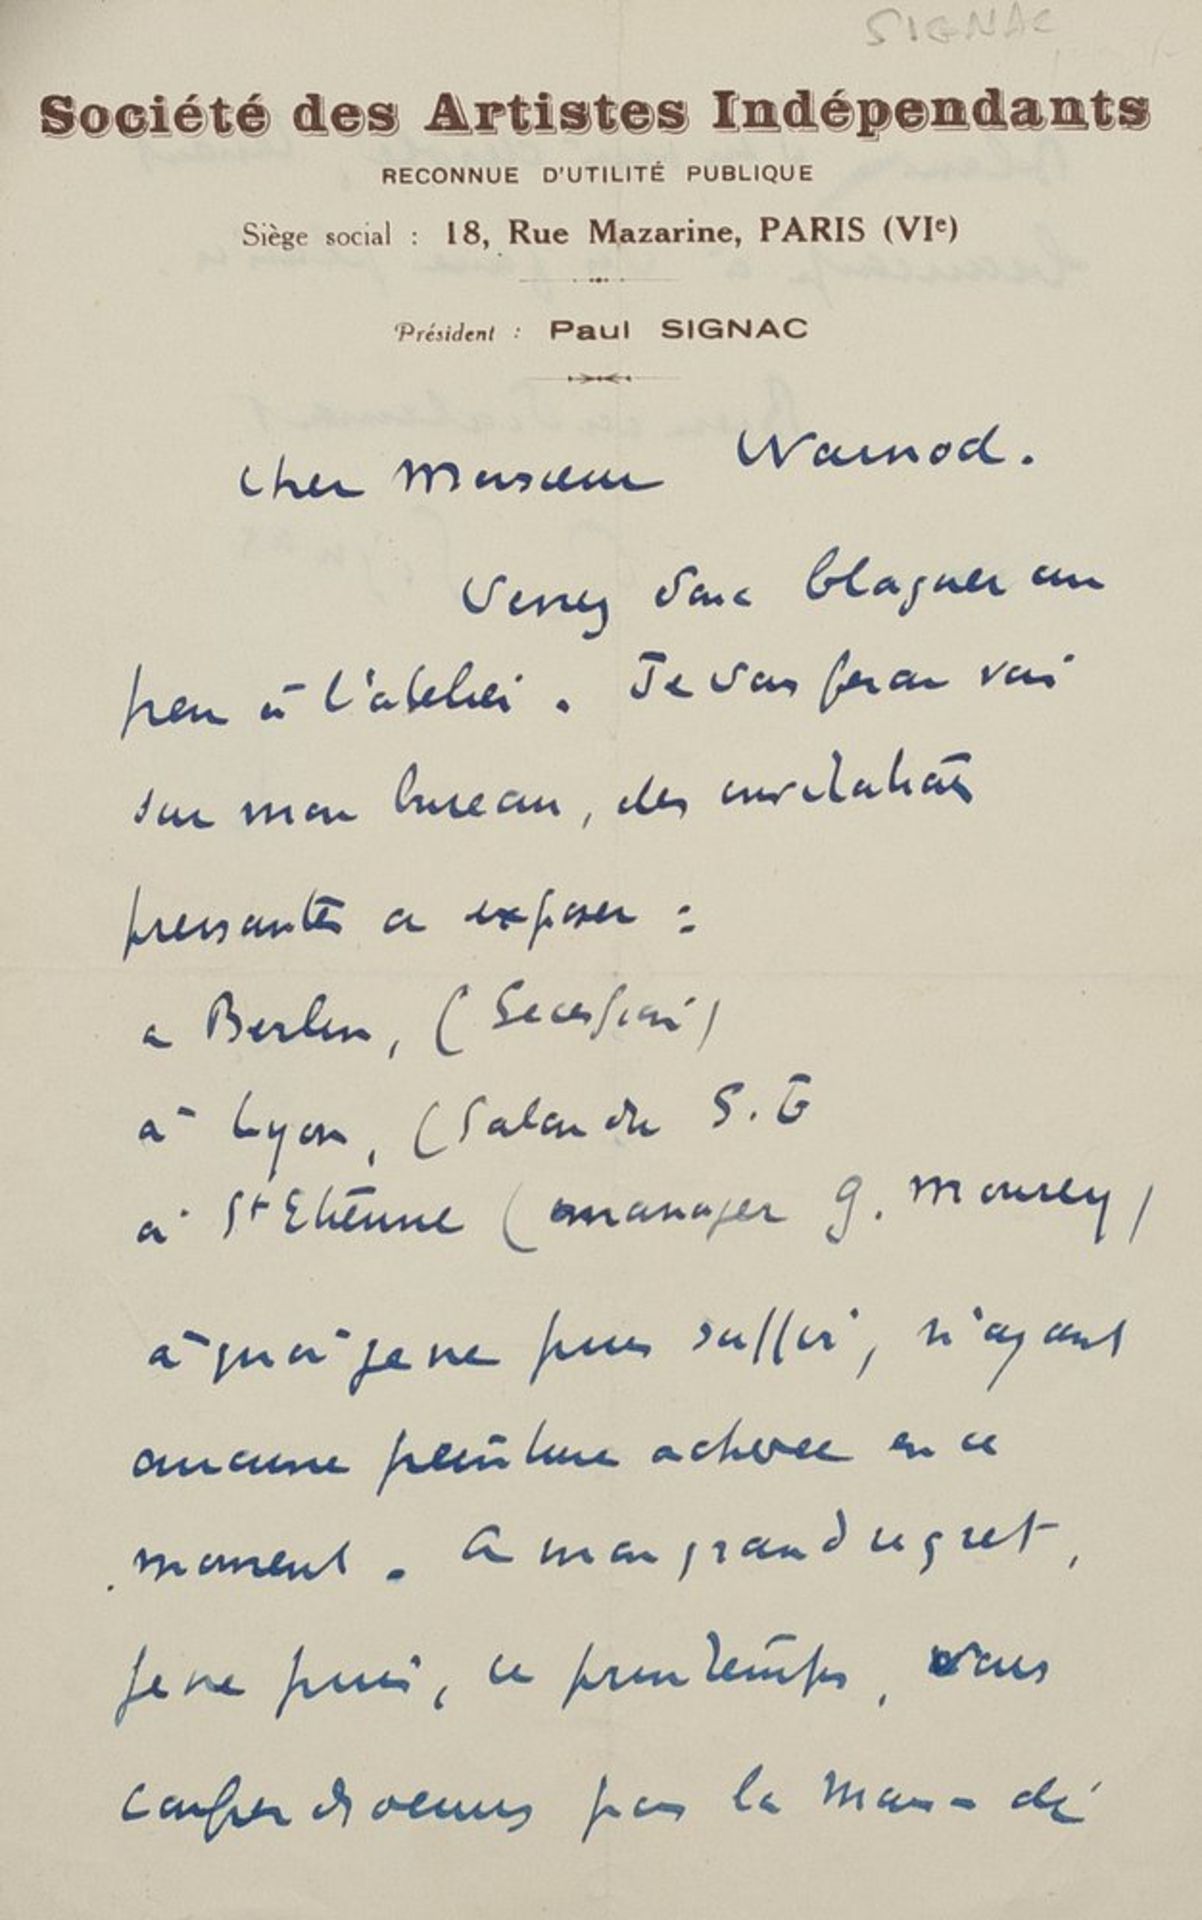 SIGNAC
Société des Artistes Indépendants
RECONNUE D'UTILITÉ PUBLIQUE
Siège social : 18, Rue Mazarine, PARIS (VIe)
Président : Paul SIGNAC
Cher Monsieur Warnod.
Venez donc blaguer un
peu à l'atelier. Je vous ferai voir
sur mon bureau, des invitations
pressantes a exposer :
a Berlin, (Secession)
à Lyon, (Salon du S. E
à St Etienne (manager G. Mourey)
à quoi je ne puis suffir, n'ayant
aucune peinture achevee en ce
moment. A mon grand regret,
je ne puis, ce printemps, vous
œuvres par la